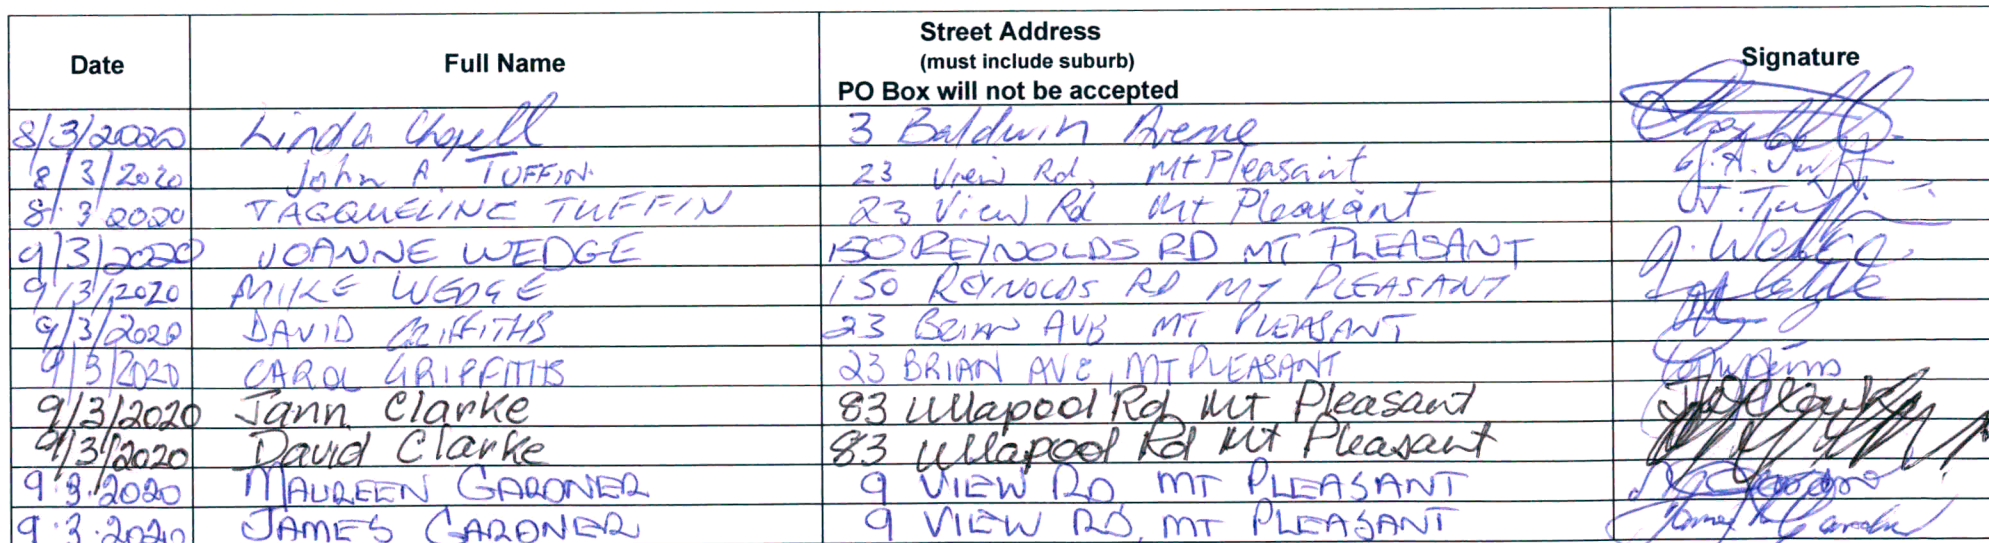 Date Full Name Street Address (must include suburb) PO Box will not be accepted Signature
8/3/2020 Linda 3 Baldwin Avenue
8/3/2020 John A. TUFFIN. 23 View Rd, Mt Pleasant J.A. Tuff
8.3.2020 JACQUELINE TUFFIN 23 View Rd Mt Pleasant J. Tuffin
9/3/2020 JOANNE WEDGE 150 REYNOLDS RD MT PLEASANT J. Wedge
9/3/2020 MIKE WEDGE 150 REYNOLDS RD MT PLEASANT
9/3/2020 DAVID GRIFFITHS 23 BRIAN AVE MT PLEASANT
9/3/2020 CAROL GRIFFITHS 23 BRIAN AVE, MT PLEASANT
9/3/2020 Jann Clarke 83 Ullapool Rd Mt Pleasant
9/3/2020 David Clarke 83 Ullapool Rd Mt Pleasant
9.3.2020 MAUREEN GARDNER 9 VIEW RD MT PLEASANT
9.3.2020 JAMES GARDNER 9 VIEW RD, MT PLEASANT James Gardner